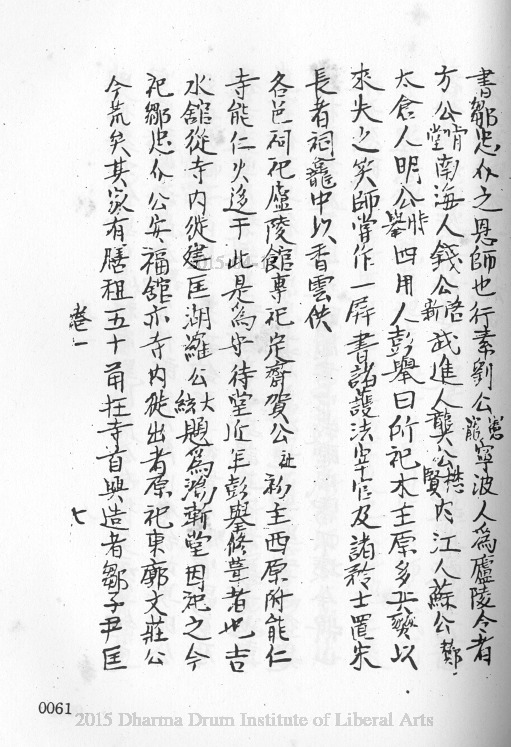 書鄒忠介之恩師也行素劉公憲寵寧波人為廬陵令者
方公肯堂南海人錢公啓新武進人龔公懋賢內江人蘇公鄰
太倉人明公時舉四用人彭舉曰所祀木主原多且襲以
來失之笑師嘗作一屏書諸護法宰官及諸矜士置宋
長者祠龕中以香雲供
各邑祠祀廬陵館專祀定齋賀公祉初主西原附能仁
寺能仁火迻于此是為守待堂近年彭舉修葺者也吉
水舘從寺內徙建匡湖羅公大紘題為鴻漸堂因祀之今
祀鄒忠介公安福舘亦寺內徙出者原祀東廓文莊公
今荒矣其家有膳租五十甬在寺首興造者鄒子尹匡
卷一
七
0061
2015 Dharma Drum Institute of Liberal Arts